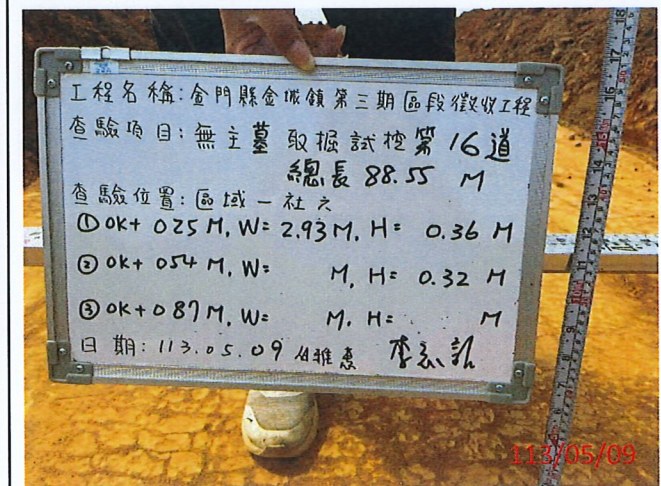 工程名稱:金門縣金城鎮第三期區段徵收工程
查驗項目:無主墓取掘試挖第16道
總長88.55 M
查驗位置:區域一社六
①0K+025M, W= 2.93M, H= 0.36 M
②0K+054M, W= M, H= 0.32 M
③0K+087M, W= M, H= M
日期:113.05.09
113/05/09